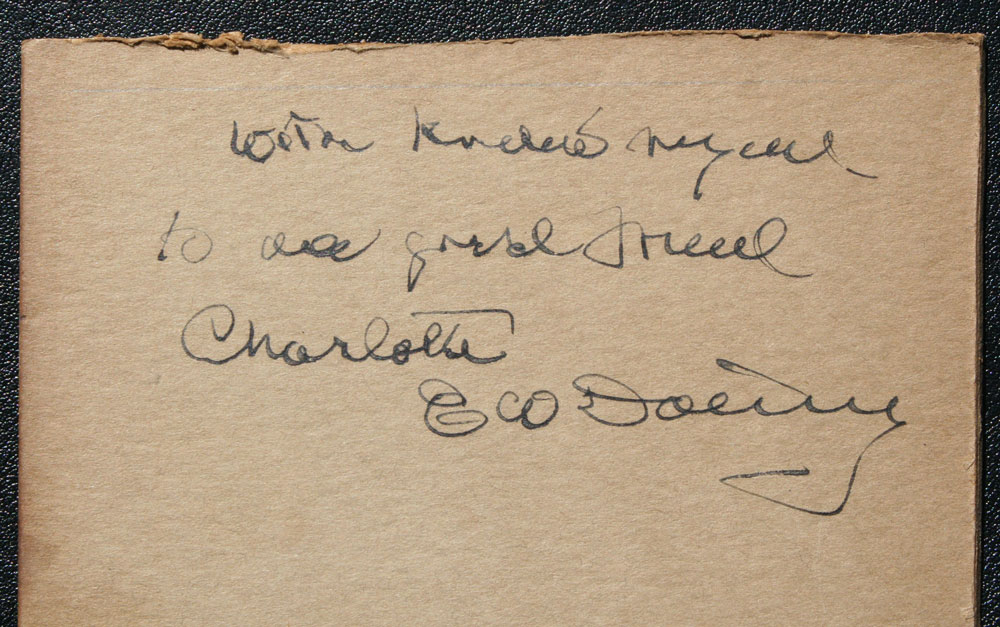 With Kindest regards
to a good friend
Charlotte
E W Doering